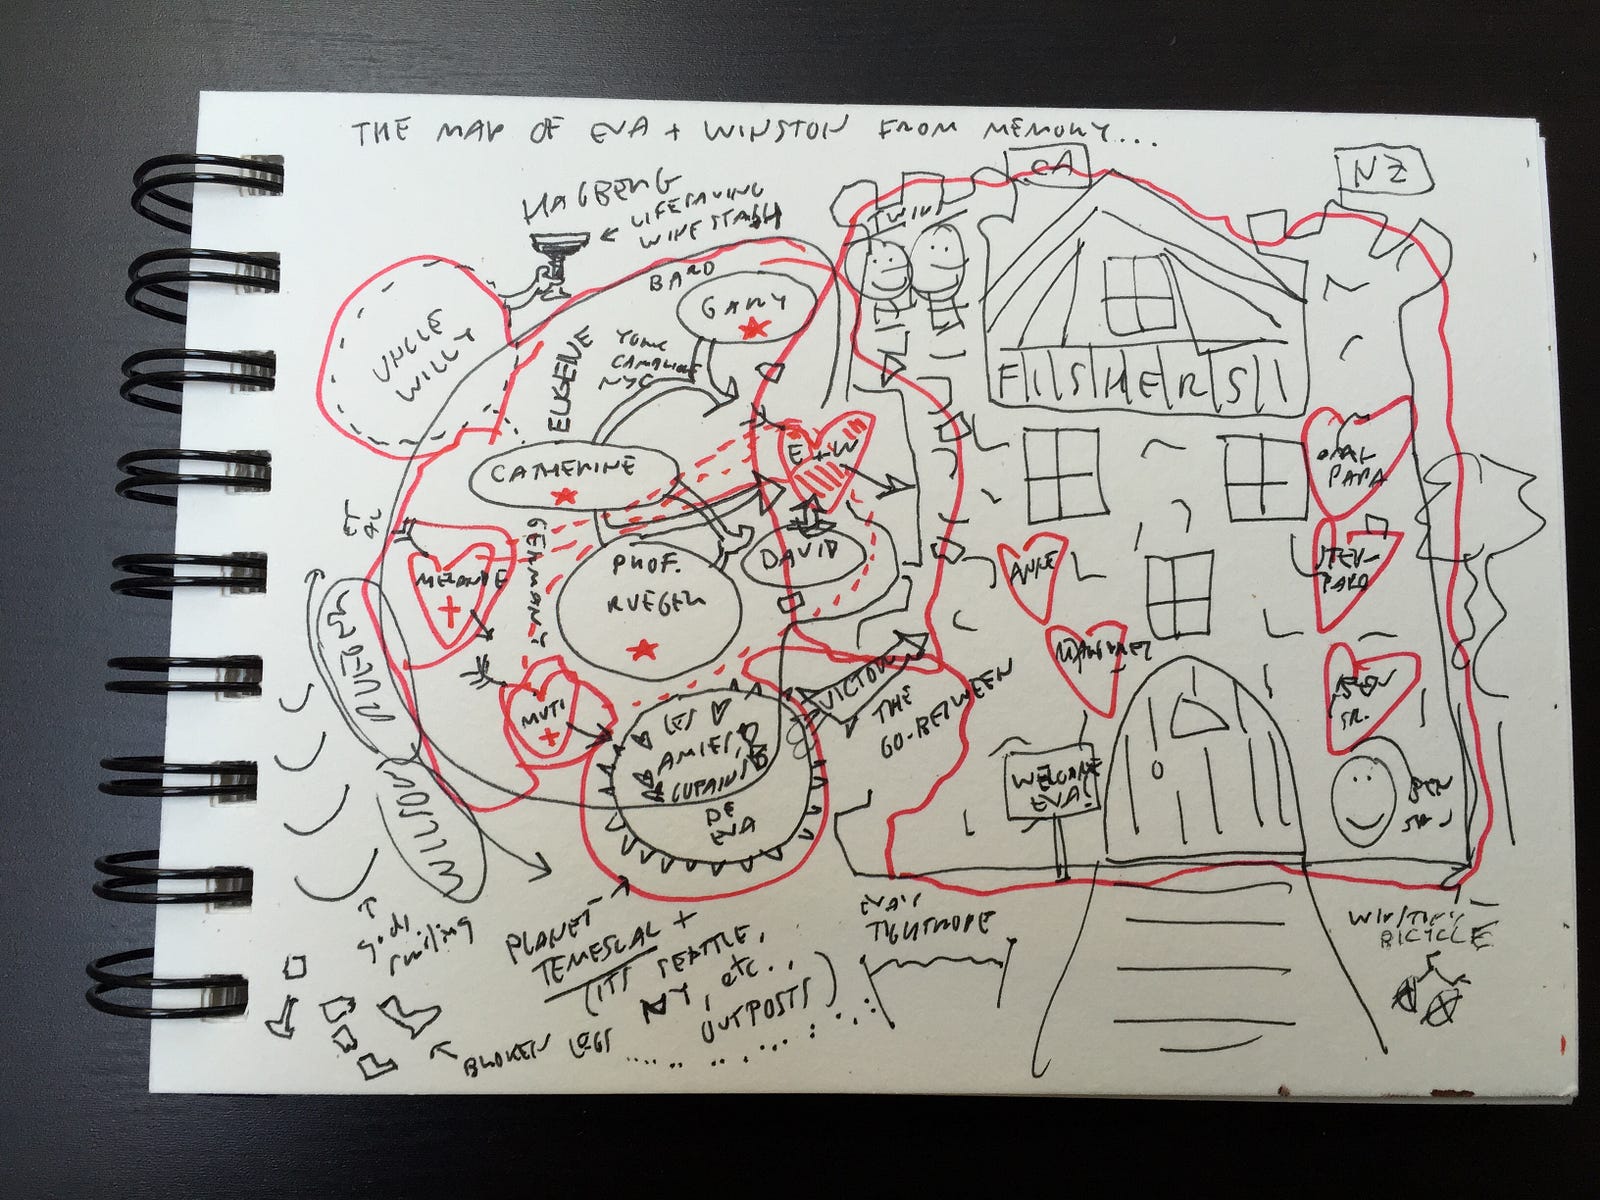 THE MAP OF EVA + WINSTON FROM MEMORY...
CA
NZ
HAGBERG
← LIFESAVING
WINE STASH
TWINS
BARD
GARY
UNCLE
WILLY
EUGENE
YOUNG
NYC
FISHERS!
CATHERINE
E+W
OPAL
PAPA
ET
AL
GERMANY
MELANIE
PROF.
RUEGER
DAVID
ANNE
MARGARET
SR.
MUTI
LES
AMIES,
COPAINS
DE
EVA
VICTOR
THE
GO-BETWEEN
WELCOME
EVA!
BEN
gods
smiling
PLANET
TEMESCAL +
(ITS SEATTLE,
NY, etc..
OUTPOSTS)
EVA'S
TIGHTROPE
WINSTON'S
BICYCLE
BROKEN LEGS